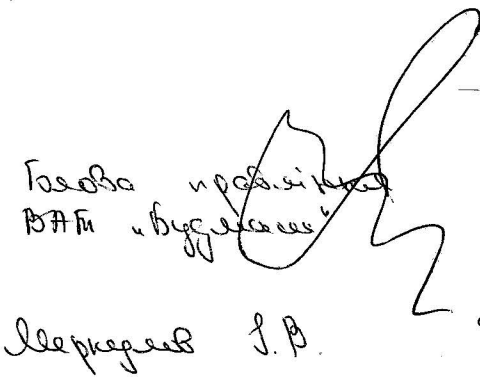 Голова правління
ВАТ "Будмаш"
Меркулов І. В.